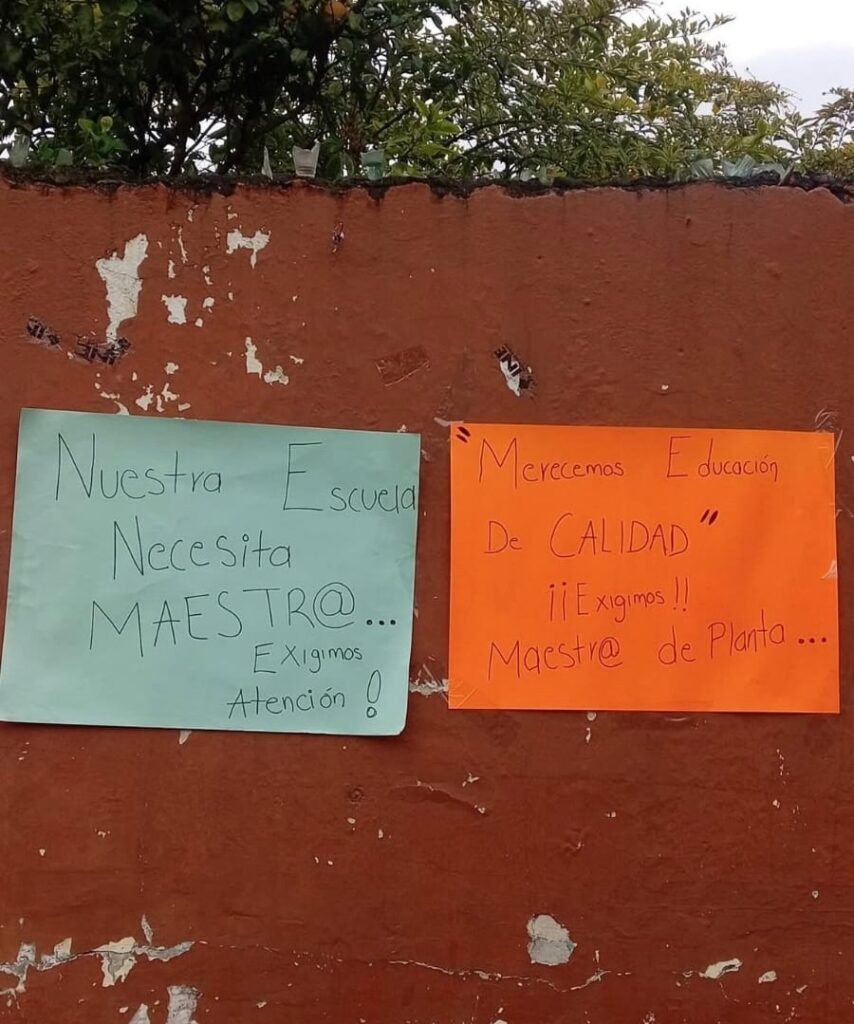 Nuestra Escuela
Necesita
MAESTR@...
Exigimos
Atención !
"Merecemos Educación
De CALIDAD"
¡¡Exigimos!!
Maestr@ de Planta...
INE
INE